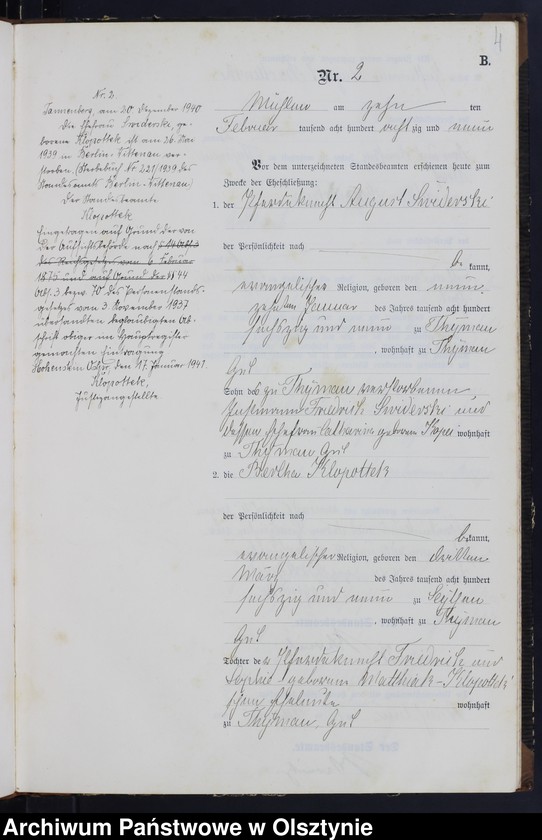 4
B.
Nr. 2
Nr. 2.
Tannenberg, am 20. Dezember 1940
Die Ehefrau Swiderski, ge-
borene Klopottek ist am 26. Mai
1939 in Berlin-Wittenau ver-
storben (Sterbebuch Nr. 221/1939 des
Standesamts Berlin-Wittenau)
Der Standesbeamte
Klopottek
Eingetragen auf Grund der von
der Aufsichtsbehörde nach § 14 Abs. 3
des Reichsgesetzes vom 6. Februar
1875 und auf Grund der §§ 44
Abs. 3 bezw. 70 des Personenstands-
gesetzes vom 3. November 1937
übersandten beglaubigten Ab-
schrift obiger im Hauptregister
gemachten Eintragung
Hohenstein Ostpr., den 17. Januar 1941
Klopottek,
Justizangestellte
Mühlen am zehn ten
Februar tausend acht hundert acht zig und neun
Vor dem unterzeichneten Standesbeamten erschienen heute zum
Zwecke der Eheschließung:
1. der Pferdeknecht August Swiderski
der Persönlichkeit nach
be kannt,
evangelischer Religion, geboren den neun
zehnten Januar des Jahres tausend acht hundert
sechszig und neun zu Thymau
, wohnhaft zu Thymau
Gut
Sohn des zu Thymau verstorbenen
Instmann Friedrich Swiderski und
dessen Ehefrau Catharine geborene wohnhaft
zu Thymau Gut
2. die Bertha Klopottek
der Persönlichkeit nach
be kannt,
evangelischer Religion, geboren den dritten
März des Jahres tausend acht hundert
sechszig und neun zu Seythen
, wohnhaft zu Thymau
Gut
Tochter der Pferdeknecht Friedrich und
Sophie geborene Matthiak-Klopottek
schen Eheleute wohnhaft
zu Thymau Gut
Archiwum Państwowe w Olsztynie